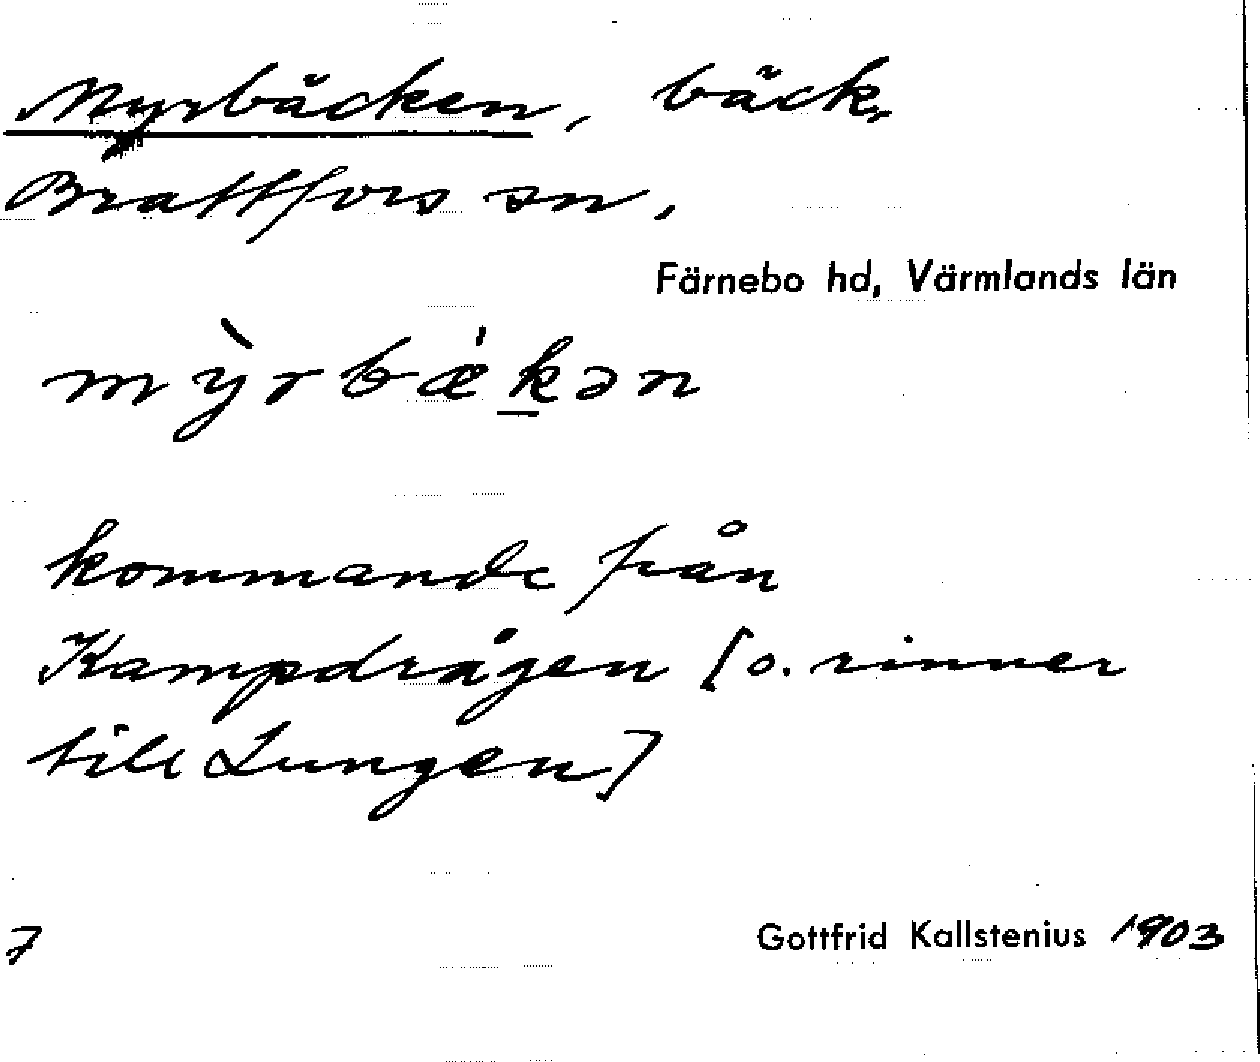 Myrbäcken, bäck,
Brattfors sn,
Färnebo hd, Värmlands län
mỳrbǽk̲ən
kommande från
Kampdrågen [o. rinner
till Lungen]
7
Gottfrid Kallstenius 1903